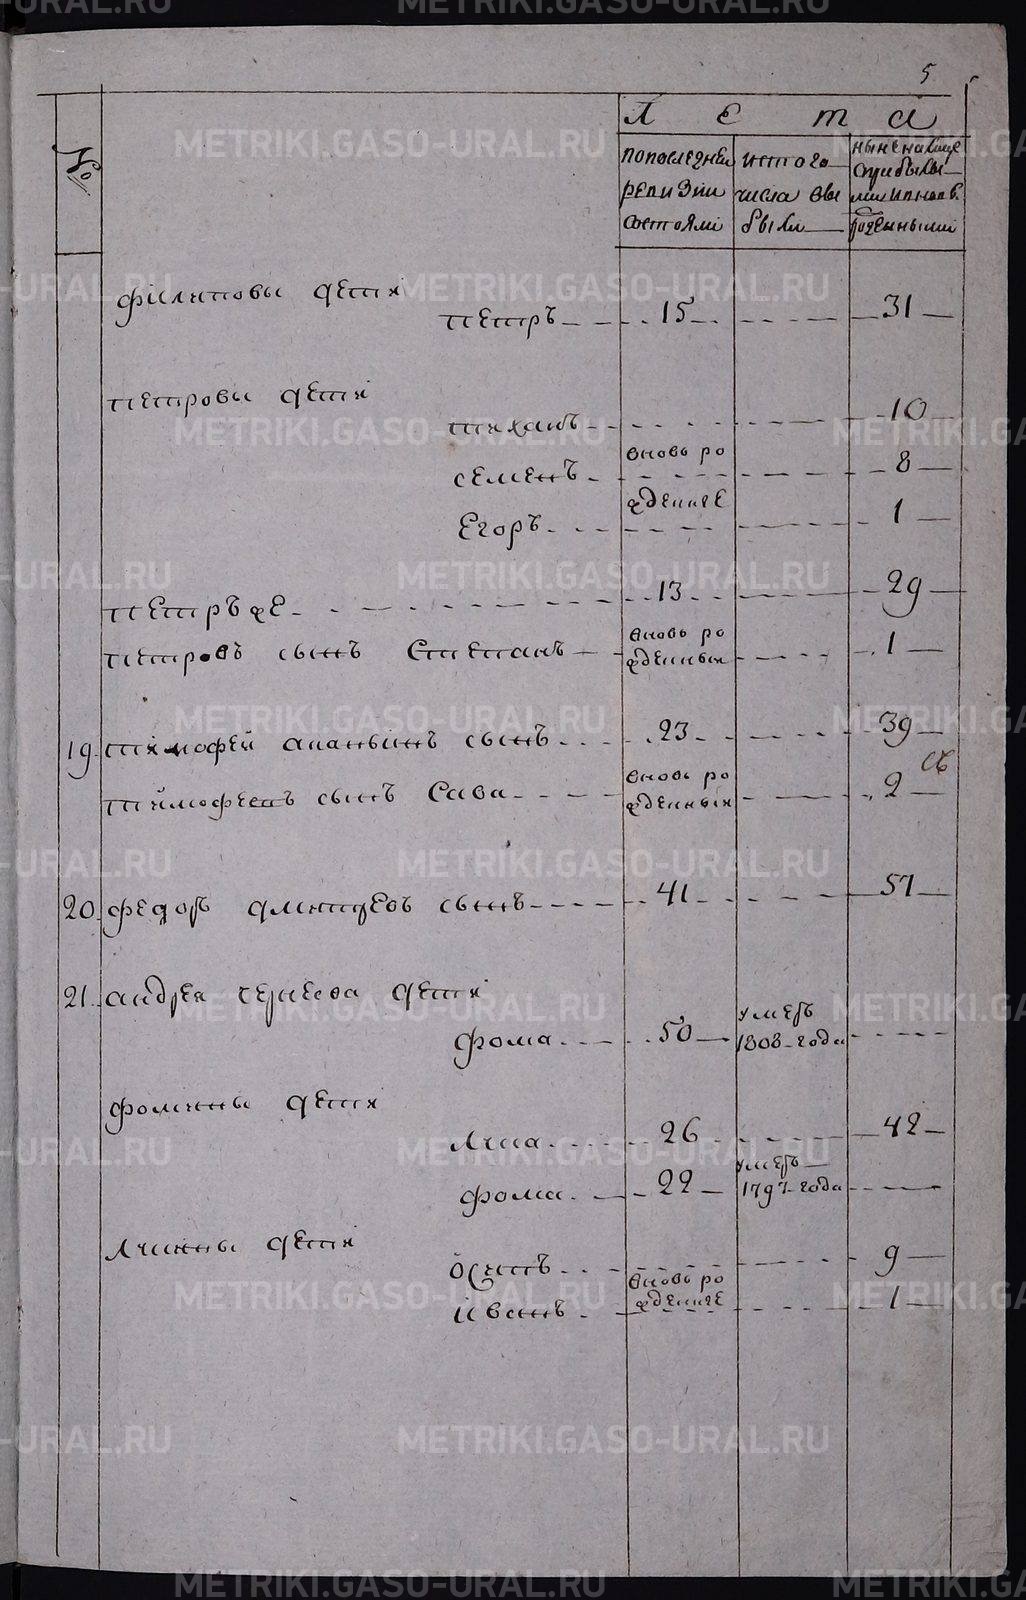 5
№
Лета
по последней ревизии состояли
ис того числа выбыли
ныне на лице
филиповы дети
петръ 15 31
петровы дети
тиханъ 10
семенъ вновь ро 8
Егоръ жденные 1
петръ же 13 29
петровъ сынъ Степанъ вновь рожденный 1
19. тимофей ананьинъ сынъ 23 39
тимофеевъ сынъ Сава вновь рожденный 2
20. федоръ сынъ 41 57
21. андрея дети
фома 50 умеръ 1808 года
фомины дети
лука 26 42
фома 22 умеръ 1797 года
лукины дети
осипъ 9
иванъ вновь рожденные 1
METRIKI.GASO-URAL.RU